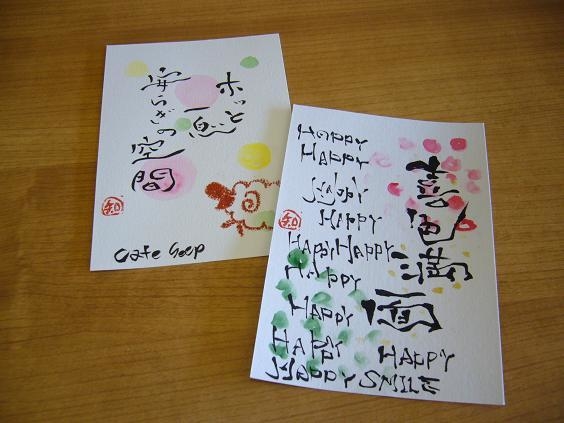 ホッと
一息
安らぎの空間
知
cafe Soup
喜色満面
HAPPY
HAPPY
HAPPY
HAPPY
知
HAPPY HAPPY
HAPPY
HAPPY
HAPPY
HAPPY
HAPPY SMILE